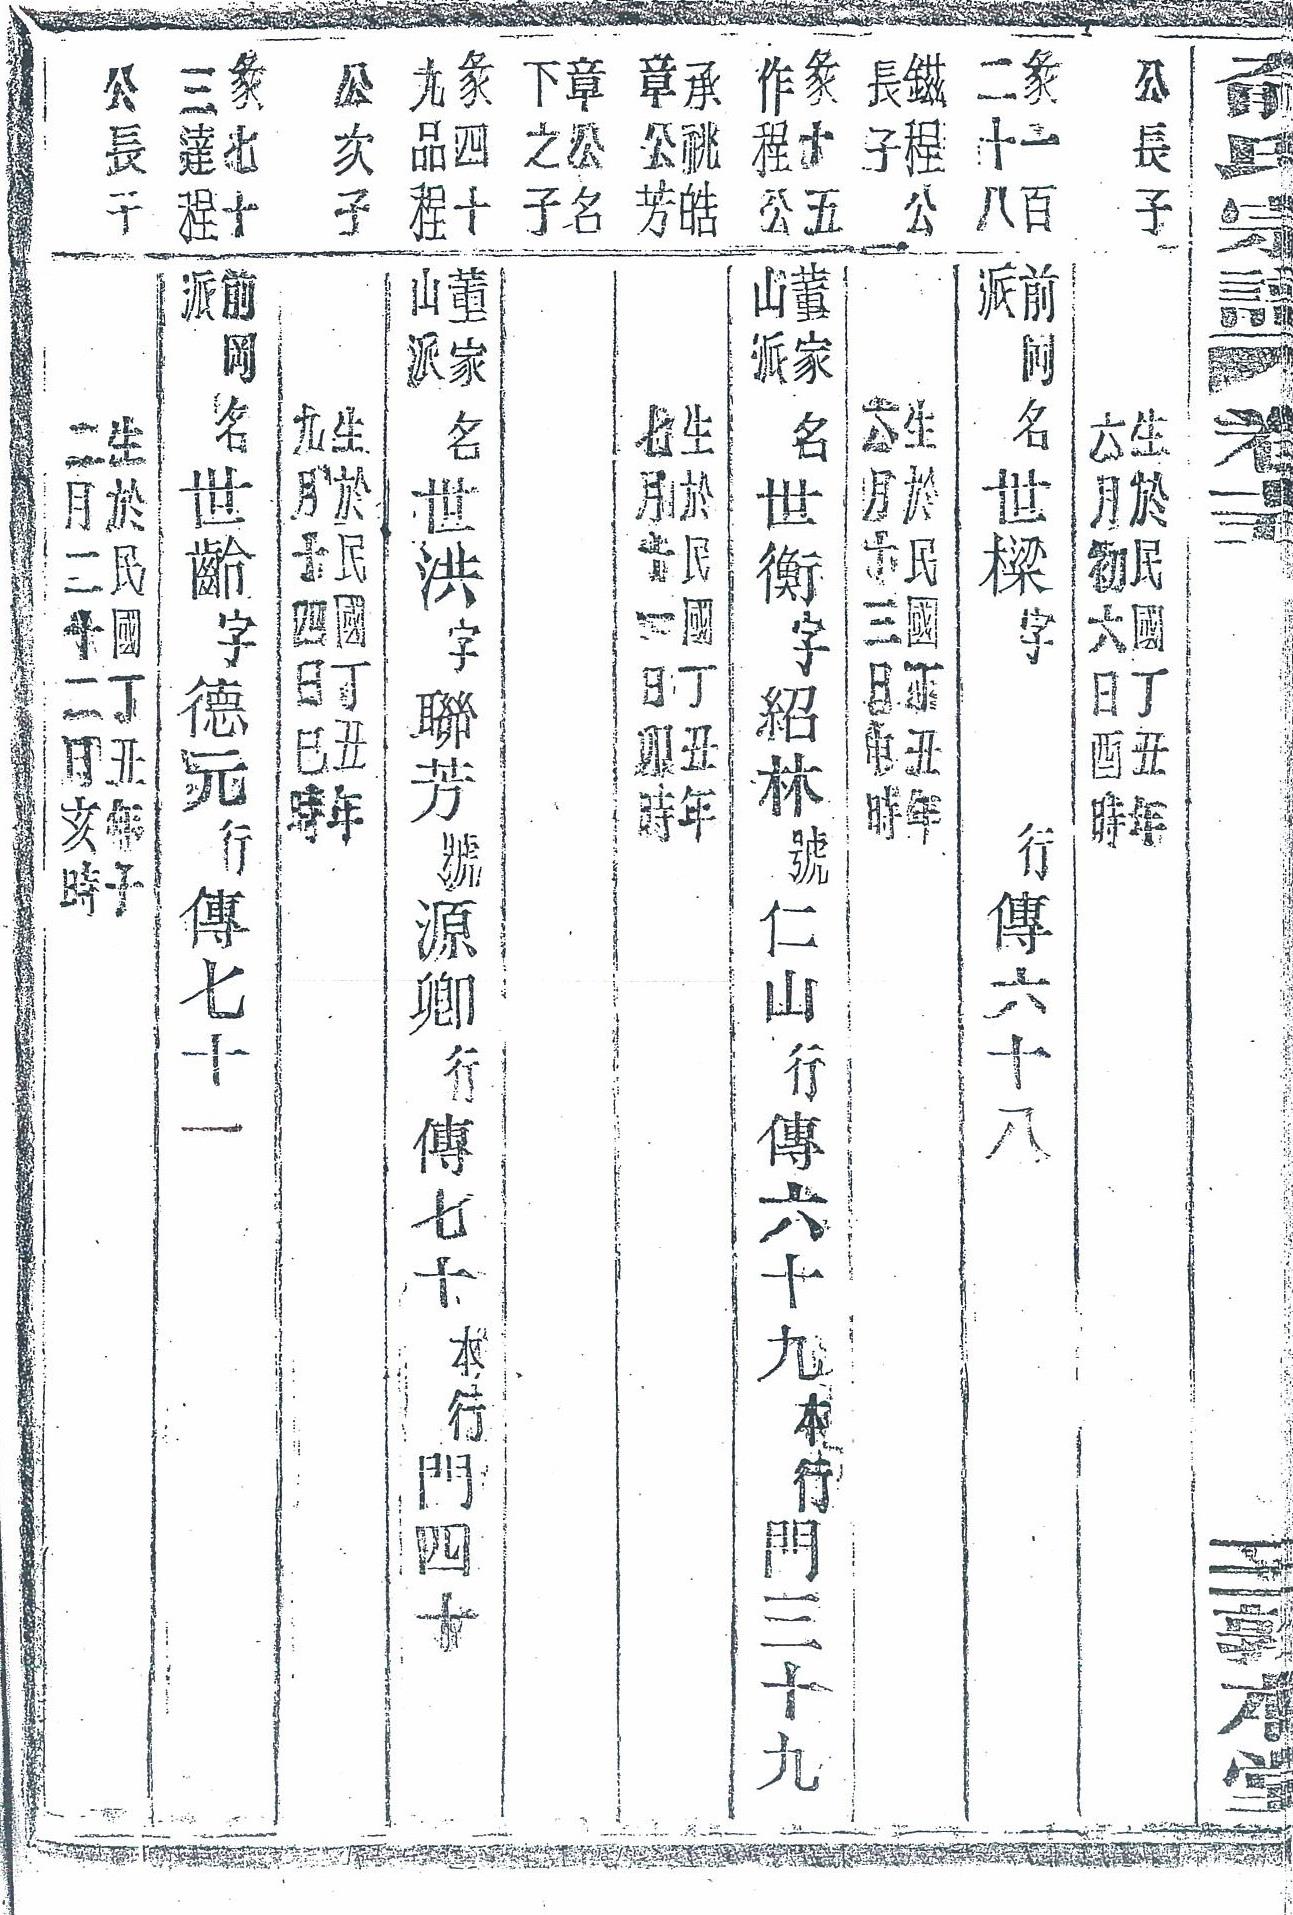 氏宗譜 卷三
公長子
生於民國丁丑年
六月初六日酉時
彖一百
二十八
鎡程公
長子
前岡
派
名世樑字 行傳六十八
生於民國丁丑年
六月十三日 時
彖十五
作程公
承祧皓
章公芳
章公名
下之子
董家
山派
名世衡字紹林號仁山行傳六十九本行門三十九
生於民國丁丑年
七月十一日卯時
彖四十
九品程
公次子
董家
山派
名世洪字聯芳號源卿行傳七十本行門四十
生於民國丁丑年
九月十四日巳時
彖七十
三達程
公長子
前岡
派
名世齡字德元行傳七十一
生於民國丁丑年子
二月二十二日亥時